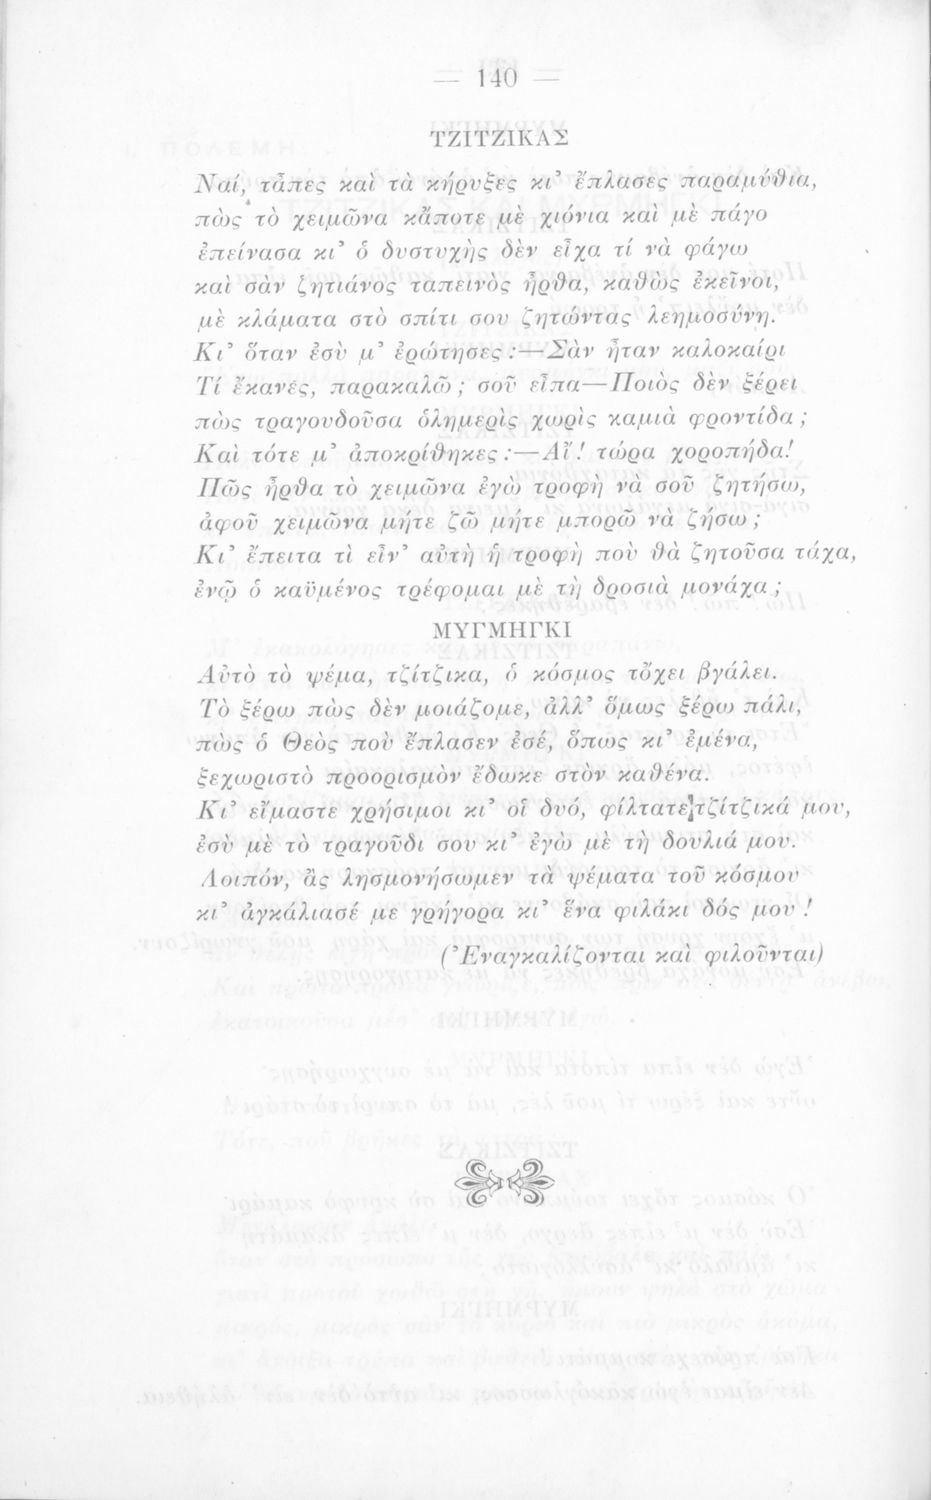 — 140 —
ΤΖΙΤΖΙΚΑΣ
Ναί, τἆπες καὶ τὰ κήρυξες κι’ ἔπλασες παραμύθια,
πὼς τὸ χειμῶνα κἄποτε μὲ χιόνια καὶ μὲ πάγο
ἐπείνασα κι’ ὁ δυστυχὴς δὲν εἶχα τί νὰ φάγω
καὶ σὰν ζητιάνος ταπεινὸς ἦρθα, καθὼς ἐκεῖνοι,
μὲ κλάματα στὸ σπίτι σου ζητῶντας λεημοσύνη.
Κι’ ὅταν ἐσὺ μ’ ἐρώτησες :—Σὰν ἦταν καλοκαίρι
Τί ἔκανές, παρακαλῶ ; σοῦ εἶπα—Ποιὸς δὲν ξέρει
πὼς τραγουδοῦσα ὁλημερὶς χωρὶς καμιὰ φροντίδα ;
Καὶ τότε μ’ ἀποκρίθηκες :—Αἴ ! τώρα χοροπήδα!
Πῶς ἦρθα τὸ χειμῶνα ἐγὼ τροφὴ νὰ σοῦ ζητήσω,
ἀφοῦ χειμῶνα μήτε ζῶ μήτε μπορῶ νὰ ζήσω ;
Κι’ ἔπειτα τὶ εἶν’ αὐτὴ ἡ τροφὴ ποὺ θὰ ζητοῦσα τάχα,
ἐνῷ ὁ καϋμένος τρέφομαι μὲ τὴ δροσιὰ μονάχα ;
ΜΥΓΜΗΓΚΙ
Αὐτὸ τὸ ψέμα, τζίτζικα, ὁ κόσμος τὄχει βγάλει.
Τὸ ξέρω πὼς δὲν μοιάζομε, ἀλλ’ ὅμως ξέρω πάλι,
πὼς ὁ Θεὸς ποὺ ἔπλασεν ἐσέ, ὅπως κι’ ἐμένα,
ξεχωριστὸ προορισμὸν ἔδωκε στὸν καθένα.
Κι’ εἴμαστε χρήσιμοι κι’ οἱ δυό, φίλτατε τζίτζικά μου,
ἐσὺ μὲ τὸ τραγοῦδι σου κι’ ἐγὼ μὲ τὴ δουλιά μου.
Λοιπόν, ἂς λησμονήσωμεν τὰ ψέματα τοῦ κόσμου
κι’ ἀγκάλιασέ με γρήγορα κι’ ἕνα φιλάκι δός μου !
(’Εναγκαλίζονται καὶ φιλοῦνται)